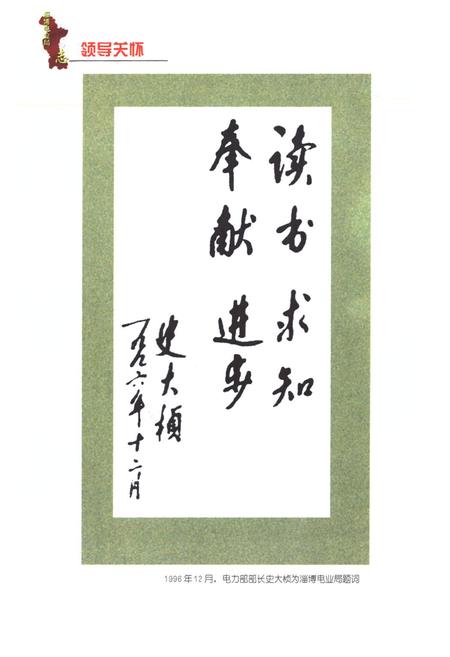 领导关怀
志
读书 求知
奉献 进步
史大桢
一九九六年十二月
1996年12月，电力部部长史大桢为淄博电业局题词